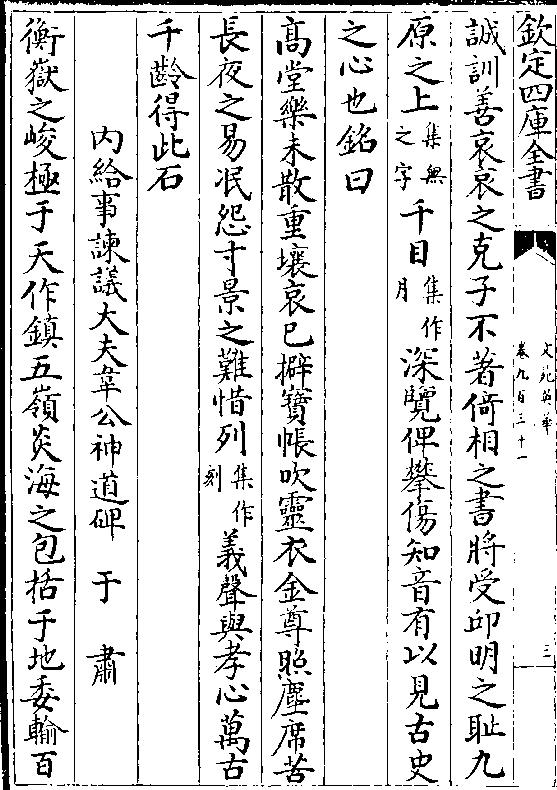 欽定四庫全書
文苑英華
卷九百三十一
三
誠訓善哀哀之克子不著倚相之書將受邱明之耻九
原之上集無之字千目集作月深覽俾攀傷知音有以見古史
之心也銘曰
髙堂樂未散重壤哀已擗寳帳吹靈衣金尊照塵席苦
長夜之易泯怨寸景之難惜列集作刻義聲與孝心萬古
千齡得此石
內給事諫議大夫韋公神道碑 于肅
衡嶽之峻極于天作鎮五嶺炎海之包括于地委輸百